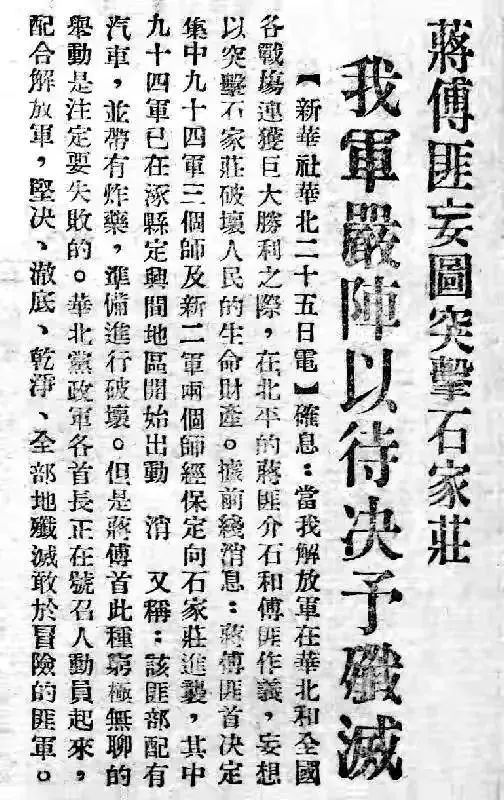 蔣傅匪妄圖突擊石家莊
我軍嚴陣以待決予殲滅
【新華社華北二十五日電】確息：當我解放軍在華北和全國
各戰場連獲巨大勝利之際，在北平的蔣匪介石和傅匪作義，妄想
以突擊石家莊破壞人民的生命財產。據前綫消息：蔣傅匪首決定
集中九十四軍三個師及新二軍兩個師經保定向石家莊進襲，其中
九十四軍已在涿縣定興間地區開始出動　消　又稱：該匪部配有
汽車，並帶有炸藥，準備進行破壞。但是蔣傅首此種窮極無聊的
舉動是注定要失敗的。華北黨政軍各首長正在號召人動員起來，
配合解放軍，堅決、澈底、乾淨、全部地殲滅敢於冒險的匪軍。